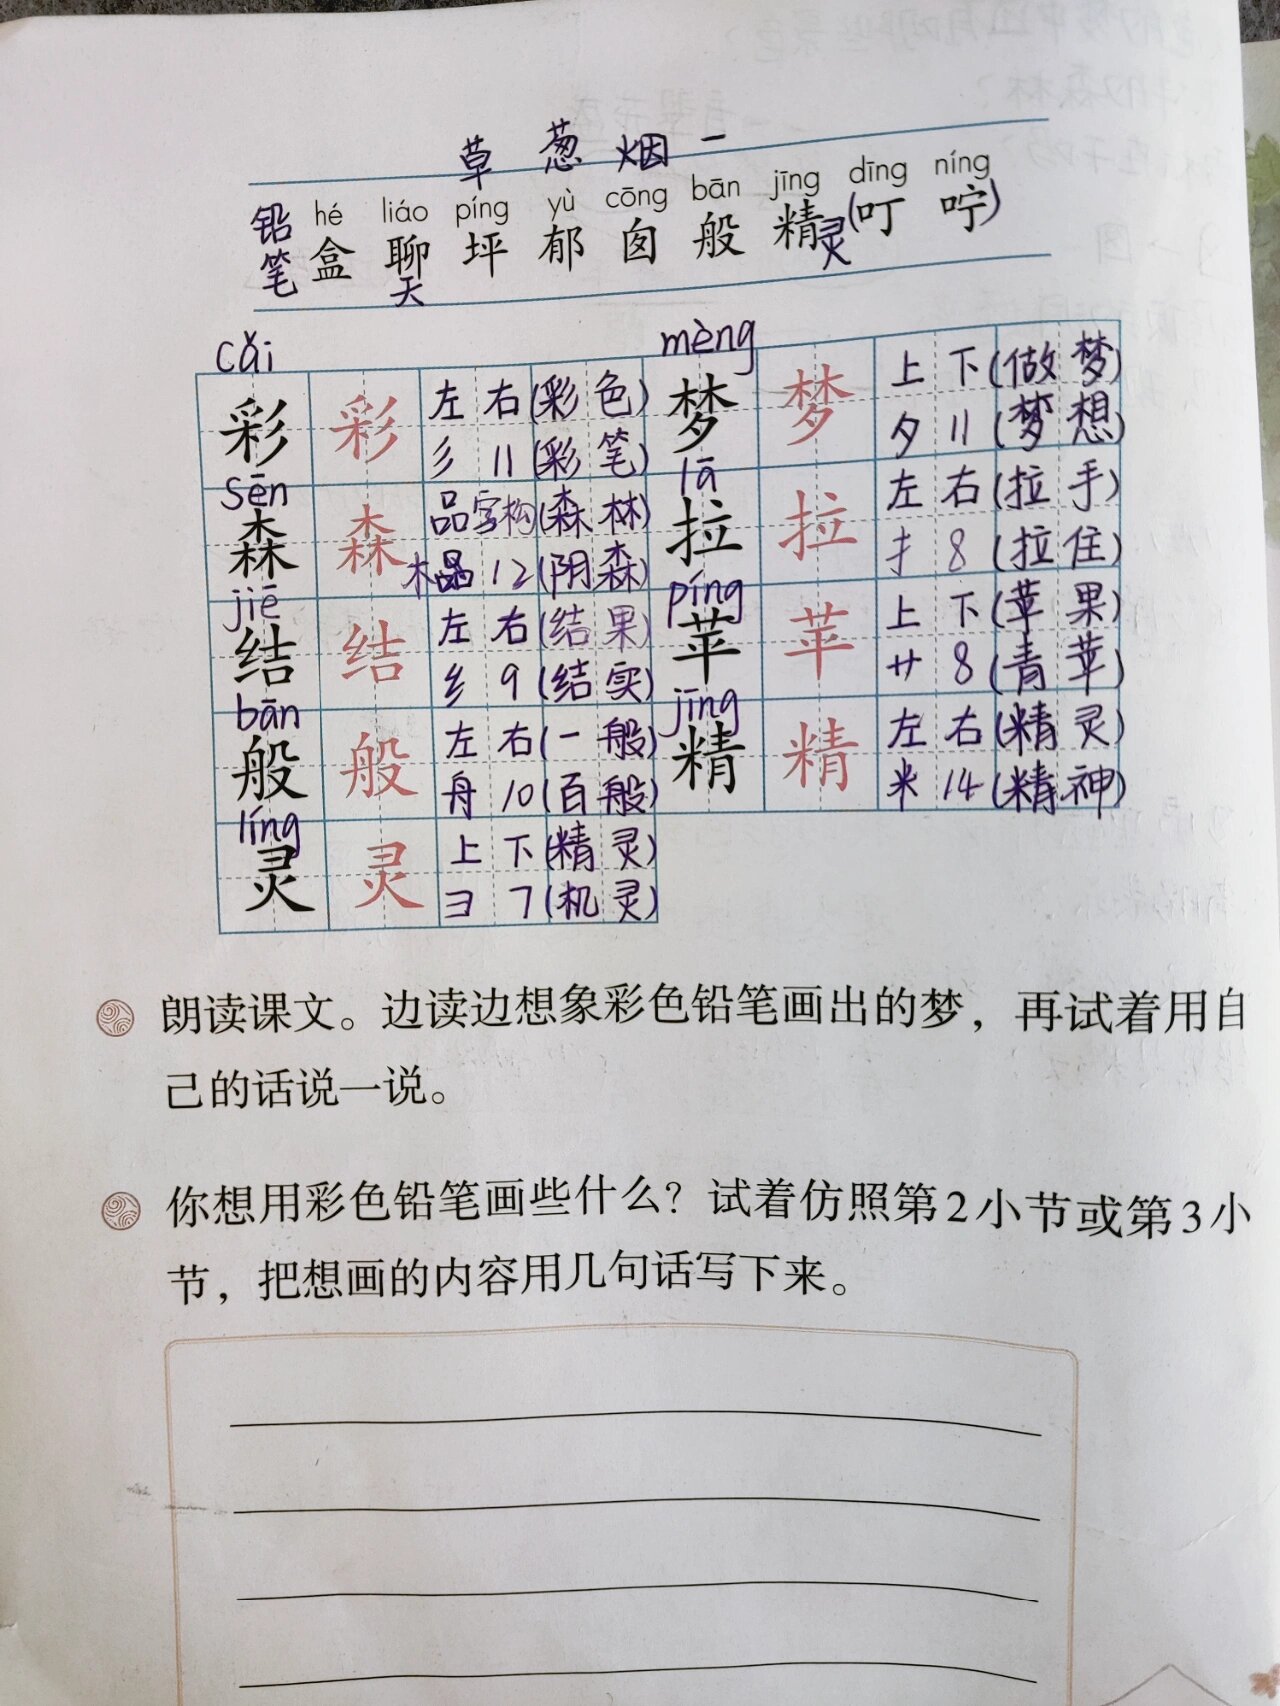 草 葱 烟 一
hé liáo píng yù cōng bān jīng dīng níng
铅笔 盒 聊天 坪 郁 囱 般 精灵(叮 咛)
cǎi mèng
彩 彩 左 右(彩 色) 梦 梦 上 下(做 梦)
彡 11(彩 笔) 夕 11(梦 想)
sēn lā
森 森 品字构(森 林) 拉 拉 左 右(拉 手)
木 12(阴 森) 扌 8(拉 住)
jiē píng
结 结 左 右(结 果) 苹 苹 上 下(苹 果)
纟 9(结 实) 艹 8(青 苹)
bān jīng
般 般 左 右(一 般) 精 精 左 右(精 灵)
舟 10(百 般) 米 14(精 神)
líng
灵 灵 上 下(精 灵)
彐 7(机 灵)
朗读课文。边读边想象彩色铅笔画出的梦，再试着用自
己的话说一说。
你想用彩色铅笔画些什么？试着仿照第2小节或第3小
节，把想画的内容用几句话写下来。